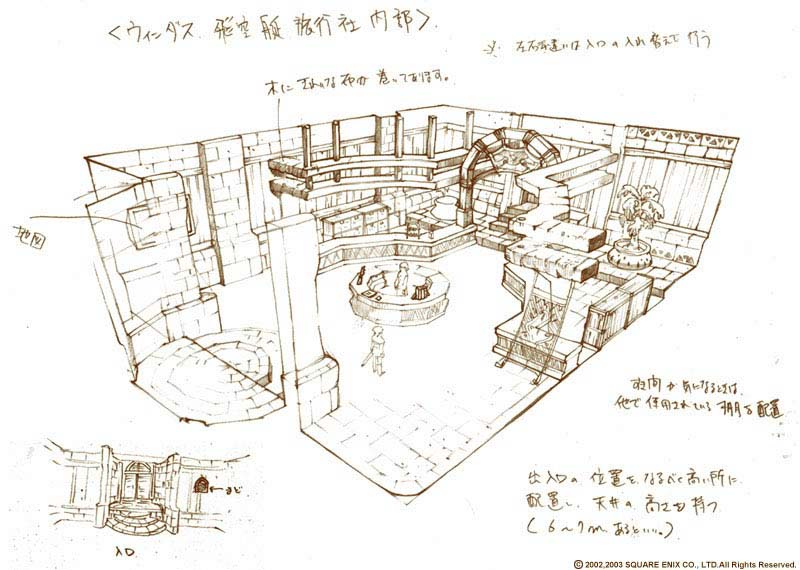 <ウィンダス 飛空艇 旅行社 内部>
※ 左右違いは入口の入れ替えで行う
木に きれいな布が 巻いてあります。
地図
空間が気になるときは、
他で使用されている棚を配置
出入口の位置を、なるべく高い所に
配置し、天井の高さを持つ
(6〜7m、あるといい。)
まど
入口
© 2002,2003 SQUARE ENIX CO., LTD.All Rights Reserved.